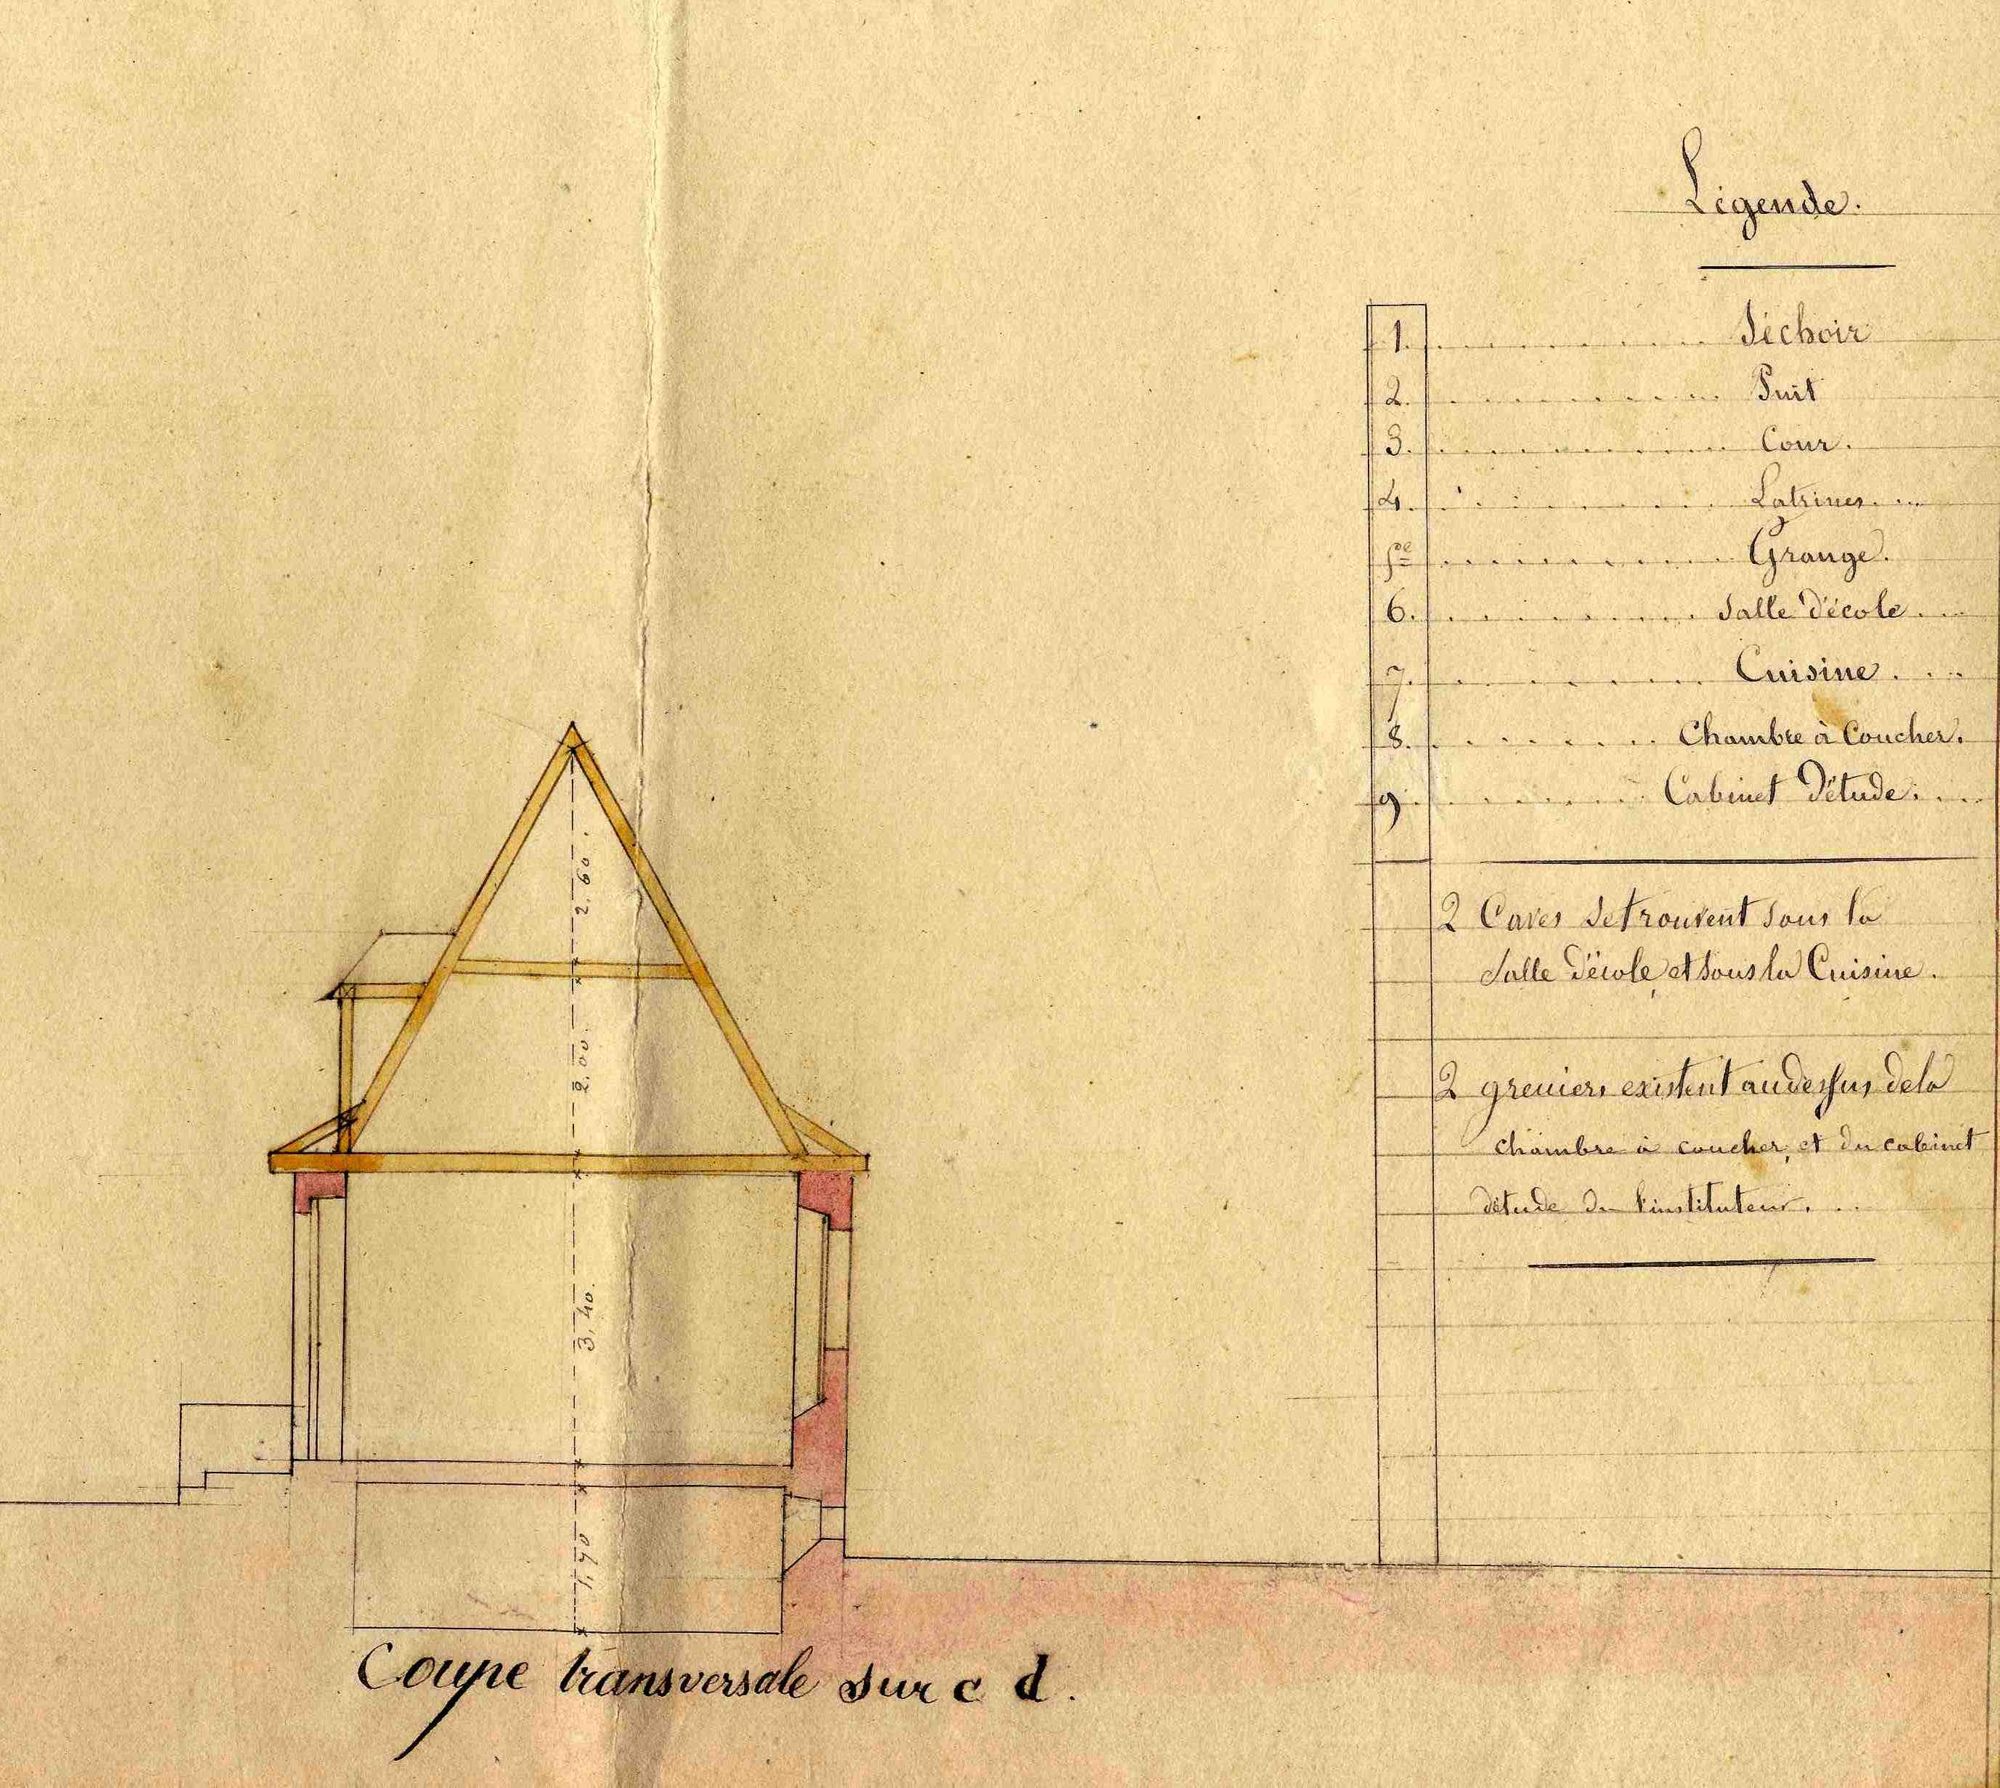 Légende.
1. Séchoir
2. Puit
3. Cour.
4. Latrines.
5 Grange.
6. Salle d'école
7. Cuisine.
8. Chambre à Coucher.
9 Cabinet d'étude.
2 Caves se trouvent sous la
Salle d'école, et sous la Cuisine.
2 greniers existent au dessus de la
chambre à coucher, et du cabinet
d'étude de l'instituteur.
2.60.
2.00.
3.40.
1.70
Coupe transversale sur c d.